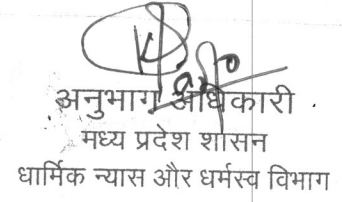 अनुभाग अधिकारी .
मध्य प्रदेश शासन
धार्मिक न्यास और धर्मस्व विभाग